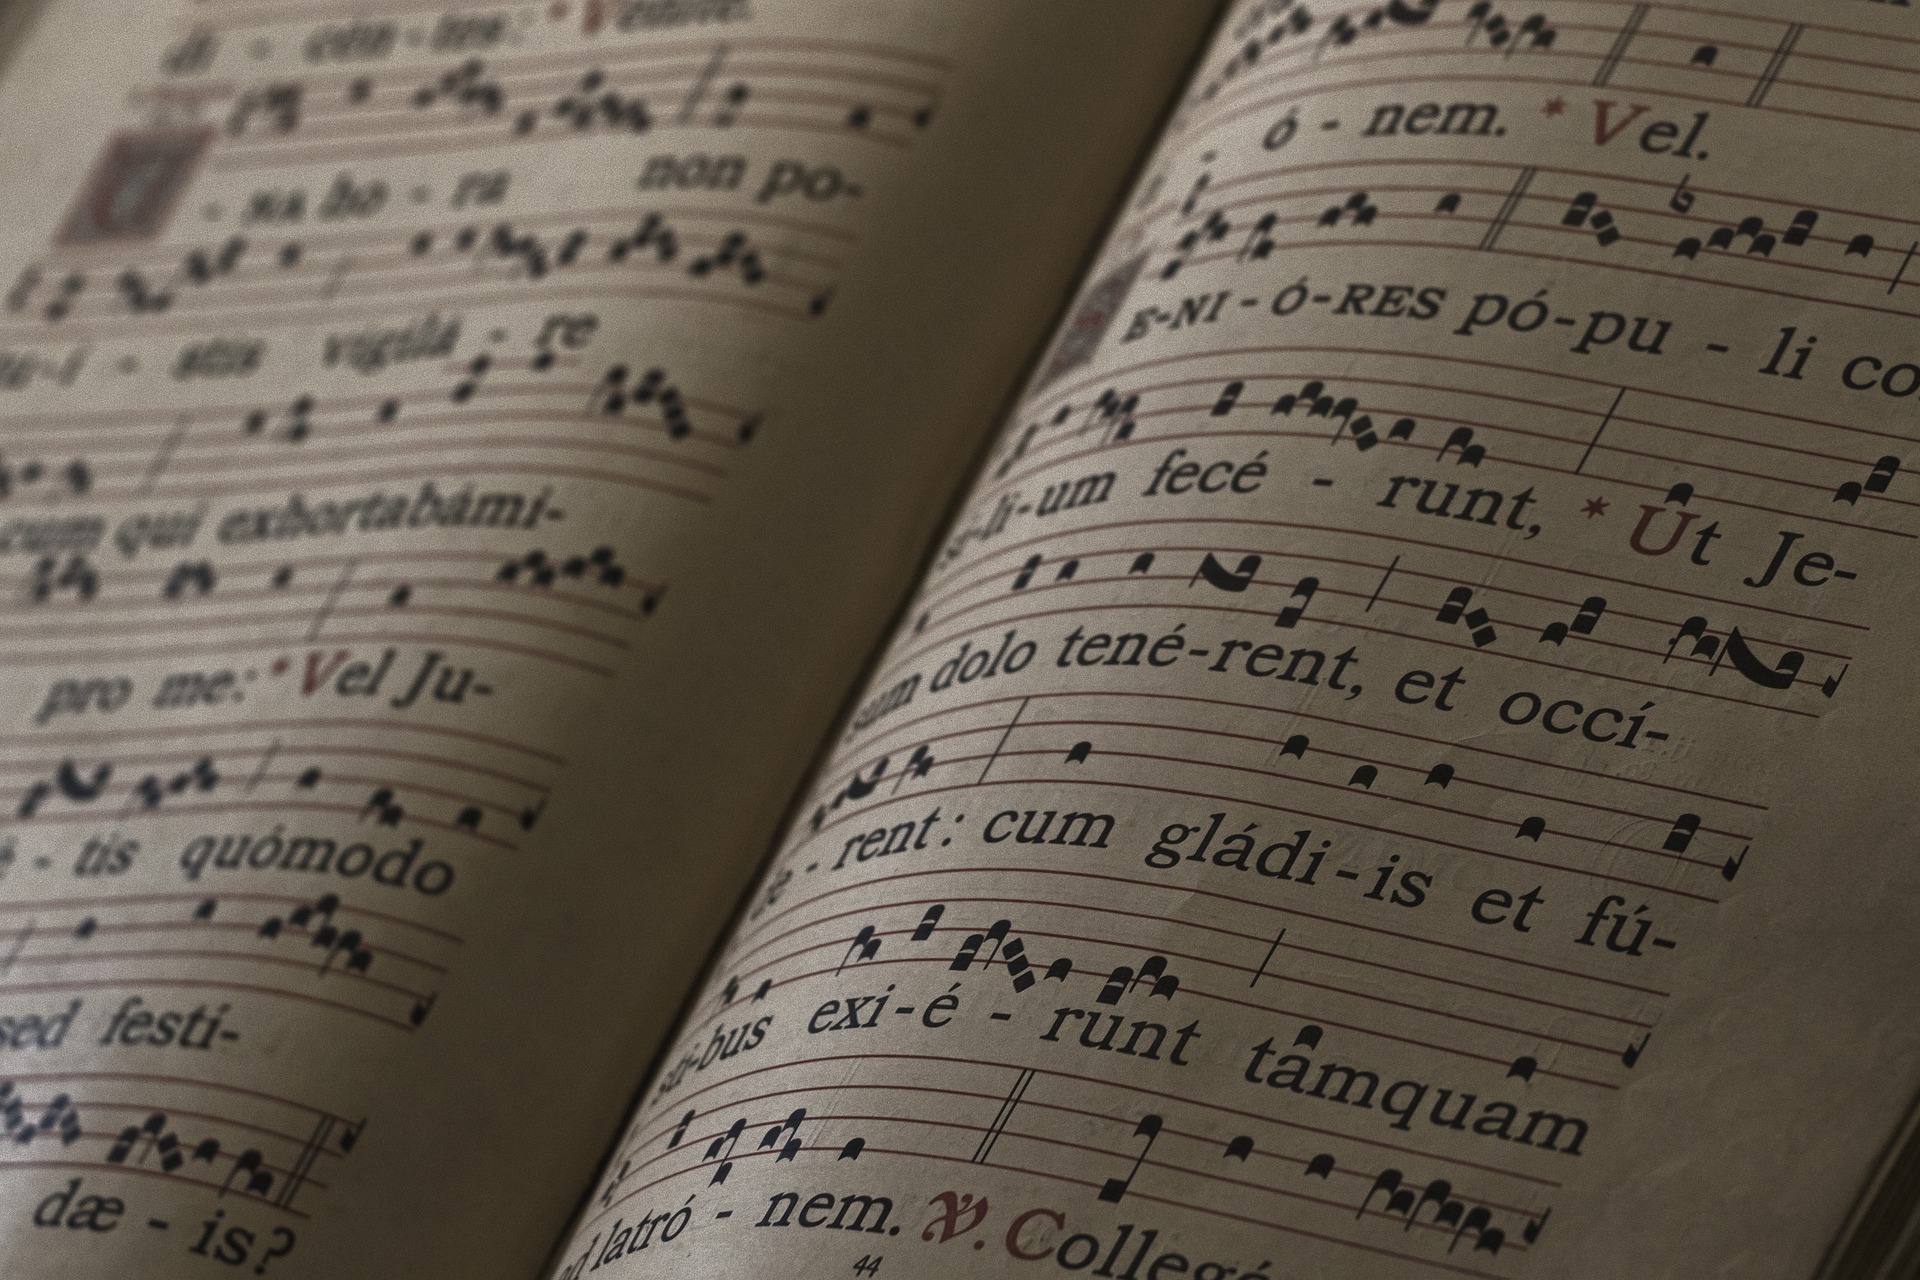 di - cen - tes: * Venite.
U - NA ho - ra non po-
tu-í - stis vigilá - re
cum qui exhortabámi-
pro me: * Vel Ju-
é - tis quómodo
sed festí-
dæ - is?
ó - nem. * Vel.
E-NI-Ó-RES pó-pu - li co
si-li-um fecé - runt, * Ut Je-
sum dolo tené-rent, et occí-
de - rent: cum gládi-is et fú-
sti-bus exi-é - runt tamquam
ad latró - nem. ℣. Collegé
44